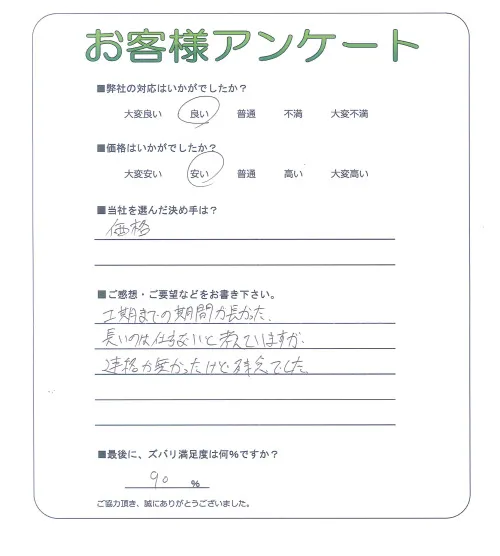 お客様アンケート
■弊社の対応はいかがでしたか？
大変良い 良い 普通 不満 大変不満
■価格はいかがでしたか？
大変安い 安い 普通 高い 大変高い
■当社を選んだ決め手は？
価格
■ご感想・ご要望などをお書き下さい。
工期までの期間が長かった、
長いのは仕方ないと考えていますが、
連絡が無かったけど残念でした。
■最後に、ズバリ満足度は何％ですか？
90 ％
ご協力頂き、誠にありがとうございました。